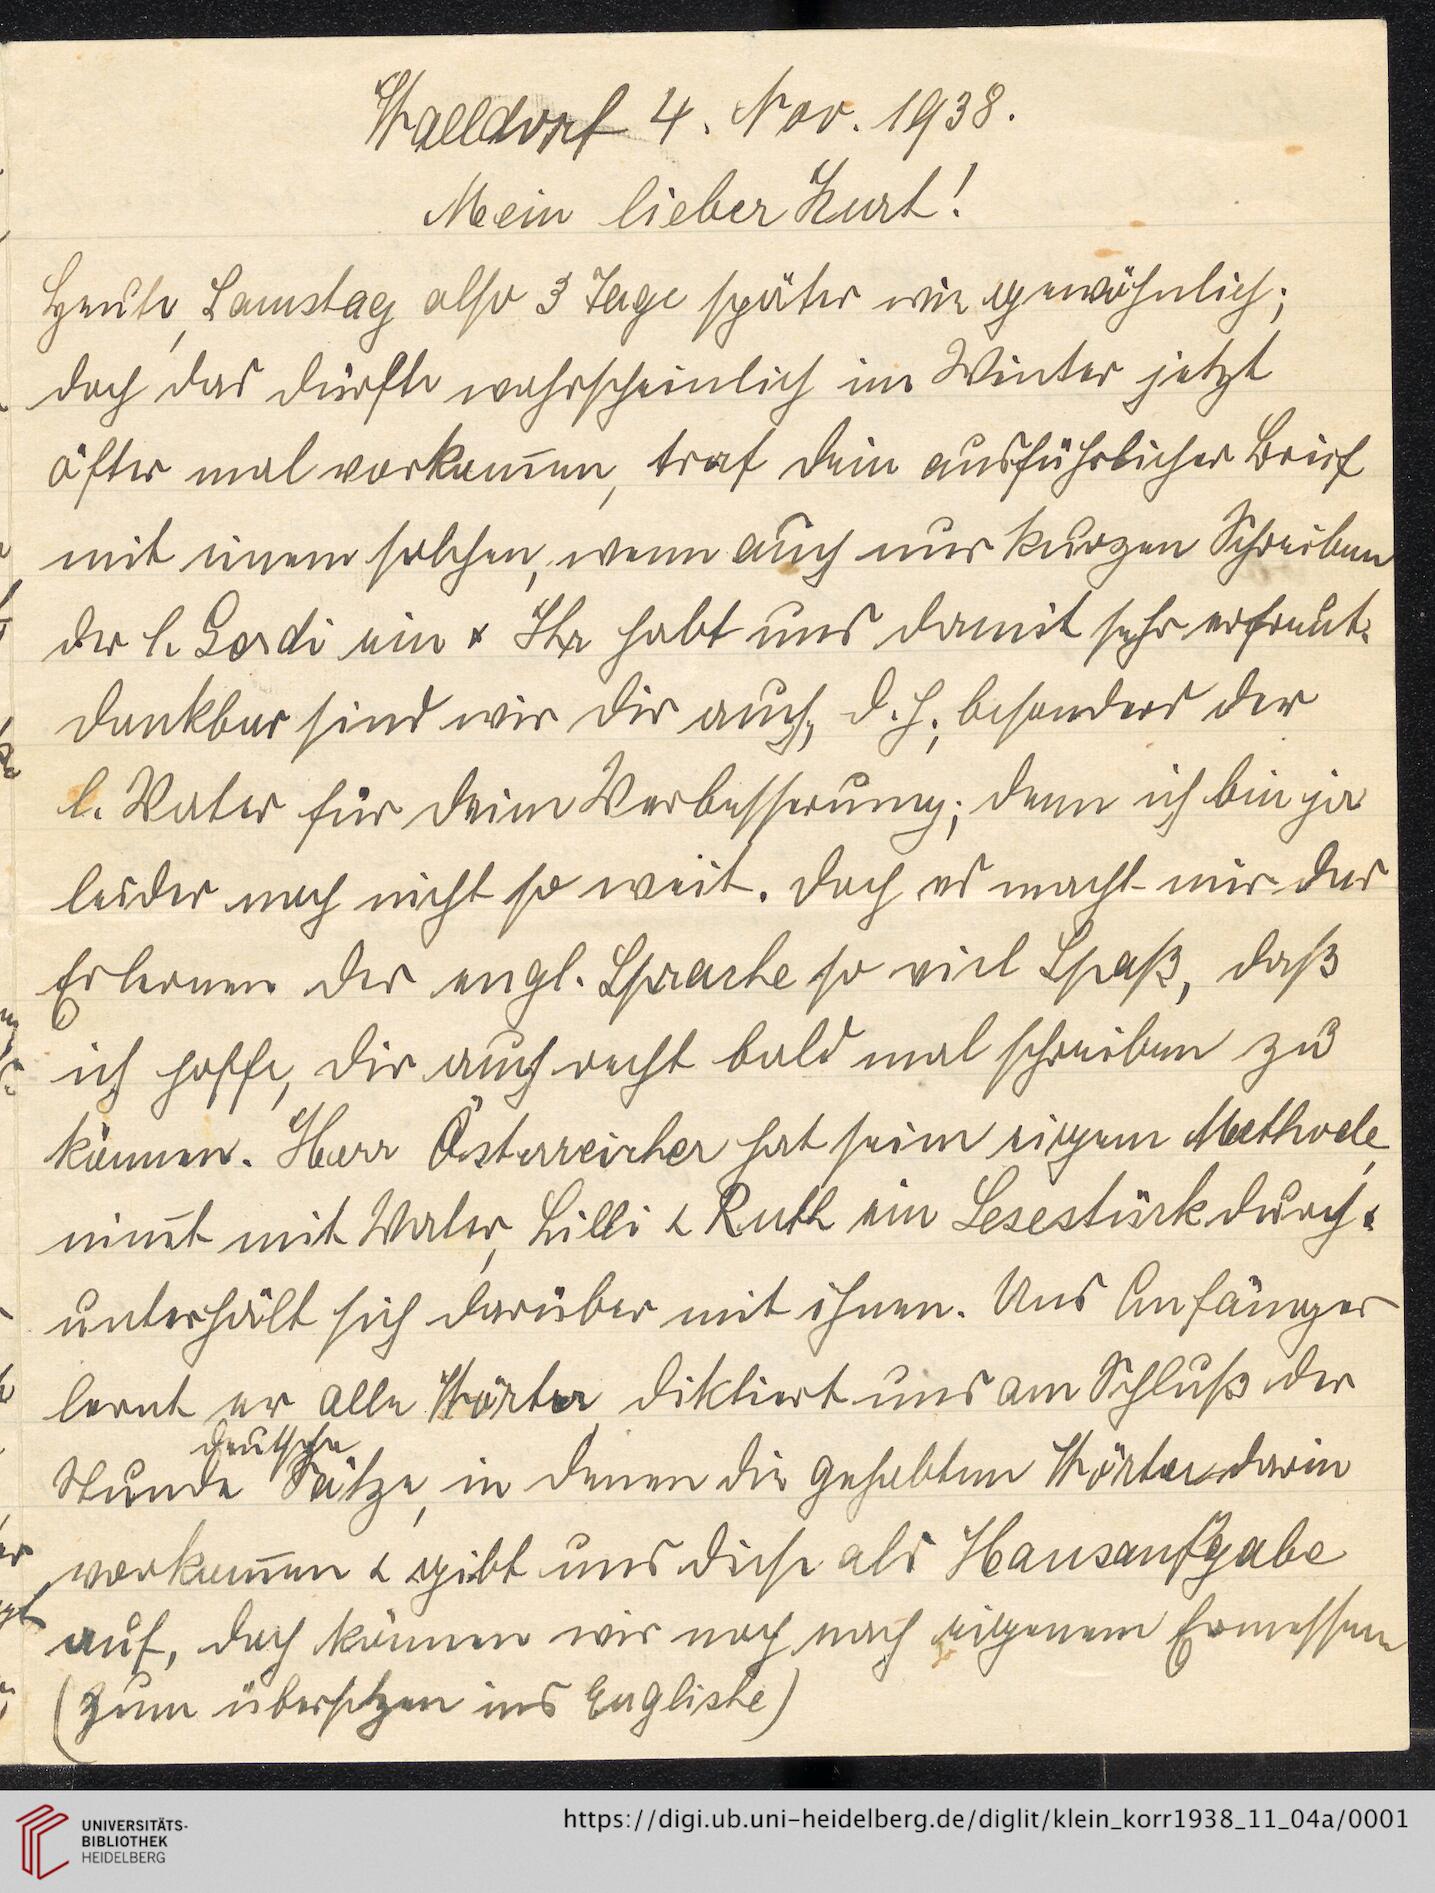 Walldorf 4. Nov. 1938.
Mein lieber Kurt!
Heute, Samstag also 3 Tage später wie gewöhnlich;
doch das dürfte wahrscheinlich im Winter jetzt
öfter mal vorkom̅en, traf dein ausführlicher Brief
mit einem solchen, wenn auch nur kurzen Schreiben
der l. Gerdi ein & Ihr habt uns damit sehr erfreut.
Dankbar sind wir dir auch, d. h., besonders der
l. Vater für deine Verbesserung; denn ich bin ja
leider noch nicht so weit. Doch es macht mir das
Erlernen der engl. Sprache so viel Spaß, daß
ich hoffe, dir auch recht bald mal schreiben zu
können. Herr Österreicher hat seine eigene Methode,
nim̅t mit Vater, Lilli & Ruth ein Lesestück durch &
unterhält sich darüber mit ihnen. Uns Anfänger
lernt er alle Wörter, diktiert uns am Schluß der
deutsche
Stunde Sätze, in denen die gehabten Wörter darin
vorkom̅en & gibt uns diese als Hausaufgabe
auf, doch können wir noch nach eigenem Ermessen
(zum übersetzen ins Englische)
UNIVERSITÄTS-
BIBLIOTHEK
HEIDELBERG
https://digi.ub.uni-heidelberg.de/diglit/klein_korr1938_11_04a/0001